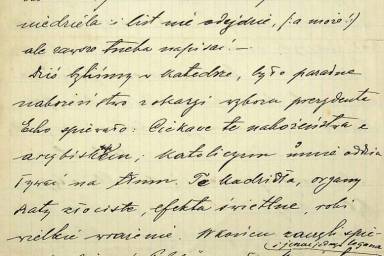 niedziela i list nie odejdzie, (: a może :)
ale zawsze trzeba napisać. –
Dziś byliśmy w katedrze, było paradne
nabożeństwo z okazji wyboru prezydenta
Echo śpiewało. Ciekawe te nabożeństwa z
arcybiskupem; katolicyzm umie oddzia
ływać na tłum. Te kadzidła, organy
szaty złociste, efekta świetlne, robi
wielkie wrażenie. W końcu zaczęli śpie-